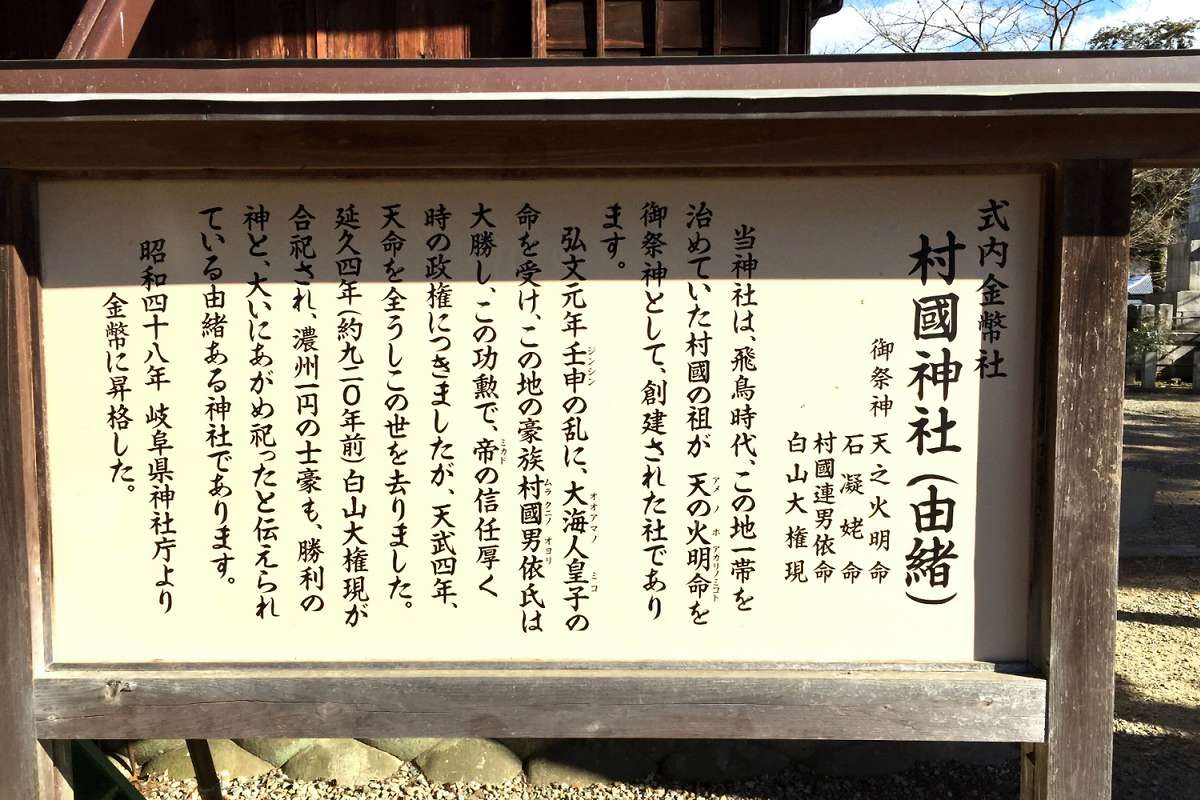 式内金幣社
村國神社(由緒)
御祭神 天之火明命
石凝姥命
村國連男依命
白山大権現
当神社は、飛鳥時代、この地一帯を
治めていた村國の祖が 天の火明命を
アメノホアカリノミコト
御祭神として、創建された社であり
ます。
弘文元年壬申の乱に、大海人皇子の
ジンシン オオアマノ ミコ
命を受け、この地の豪族村國男依氏は
ムラクニノ オヨリ
大勝し、この功勲で、帝の信任厚く
ミカド
時の政権につきましたが、天武四年、
天命を全うしこの世を去りました。
延久四年(約九二〇年前)白山大権現が
合祀され、濃州一円の士豪も、勝利の
神と、大いにあがめ祀ったと伝えられ
ている由緒ある神社であります。
昭和四十八年 岐阜県神社庁より
金幣に昇格した。